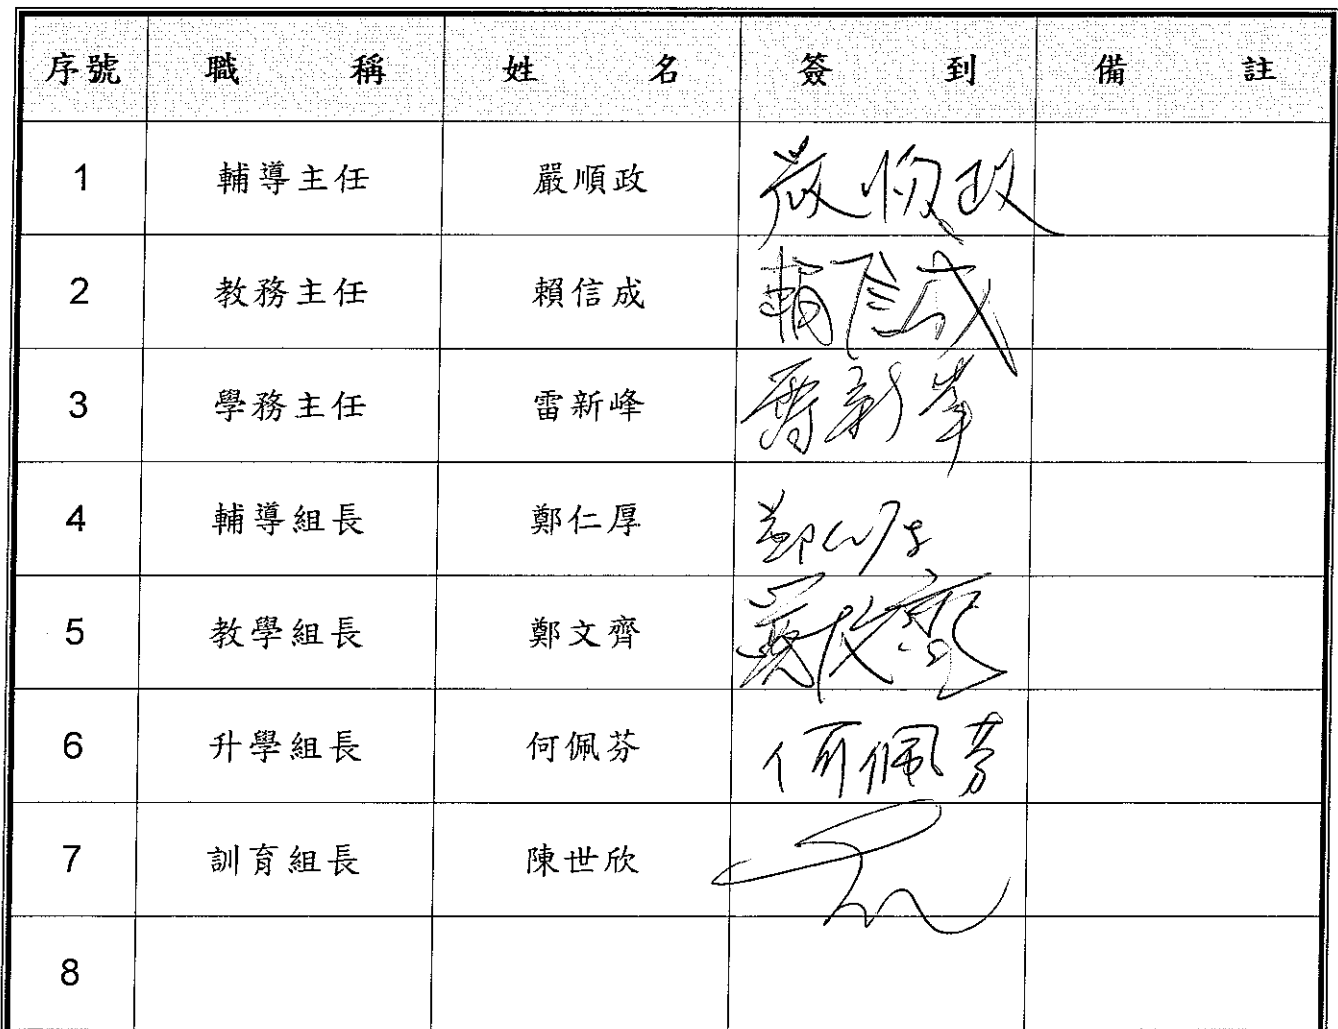 序號 職稱 姓名 簽到 備註
1 輔導主任 嚴順政 嚴順政
2 教務主任 賴信成 賴信成
3 學務主任 雷新峰 雷新峯
4 輔導組長 鄭仁厚 鄭仁厚
5 教學組長 鄭文齊
6 升學組長 何佩芬 何佩芬
7 訓育組長 陳世欣
8